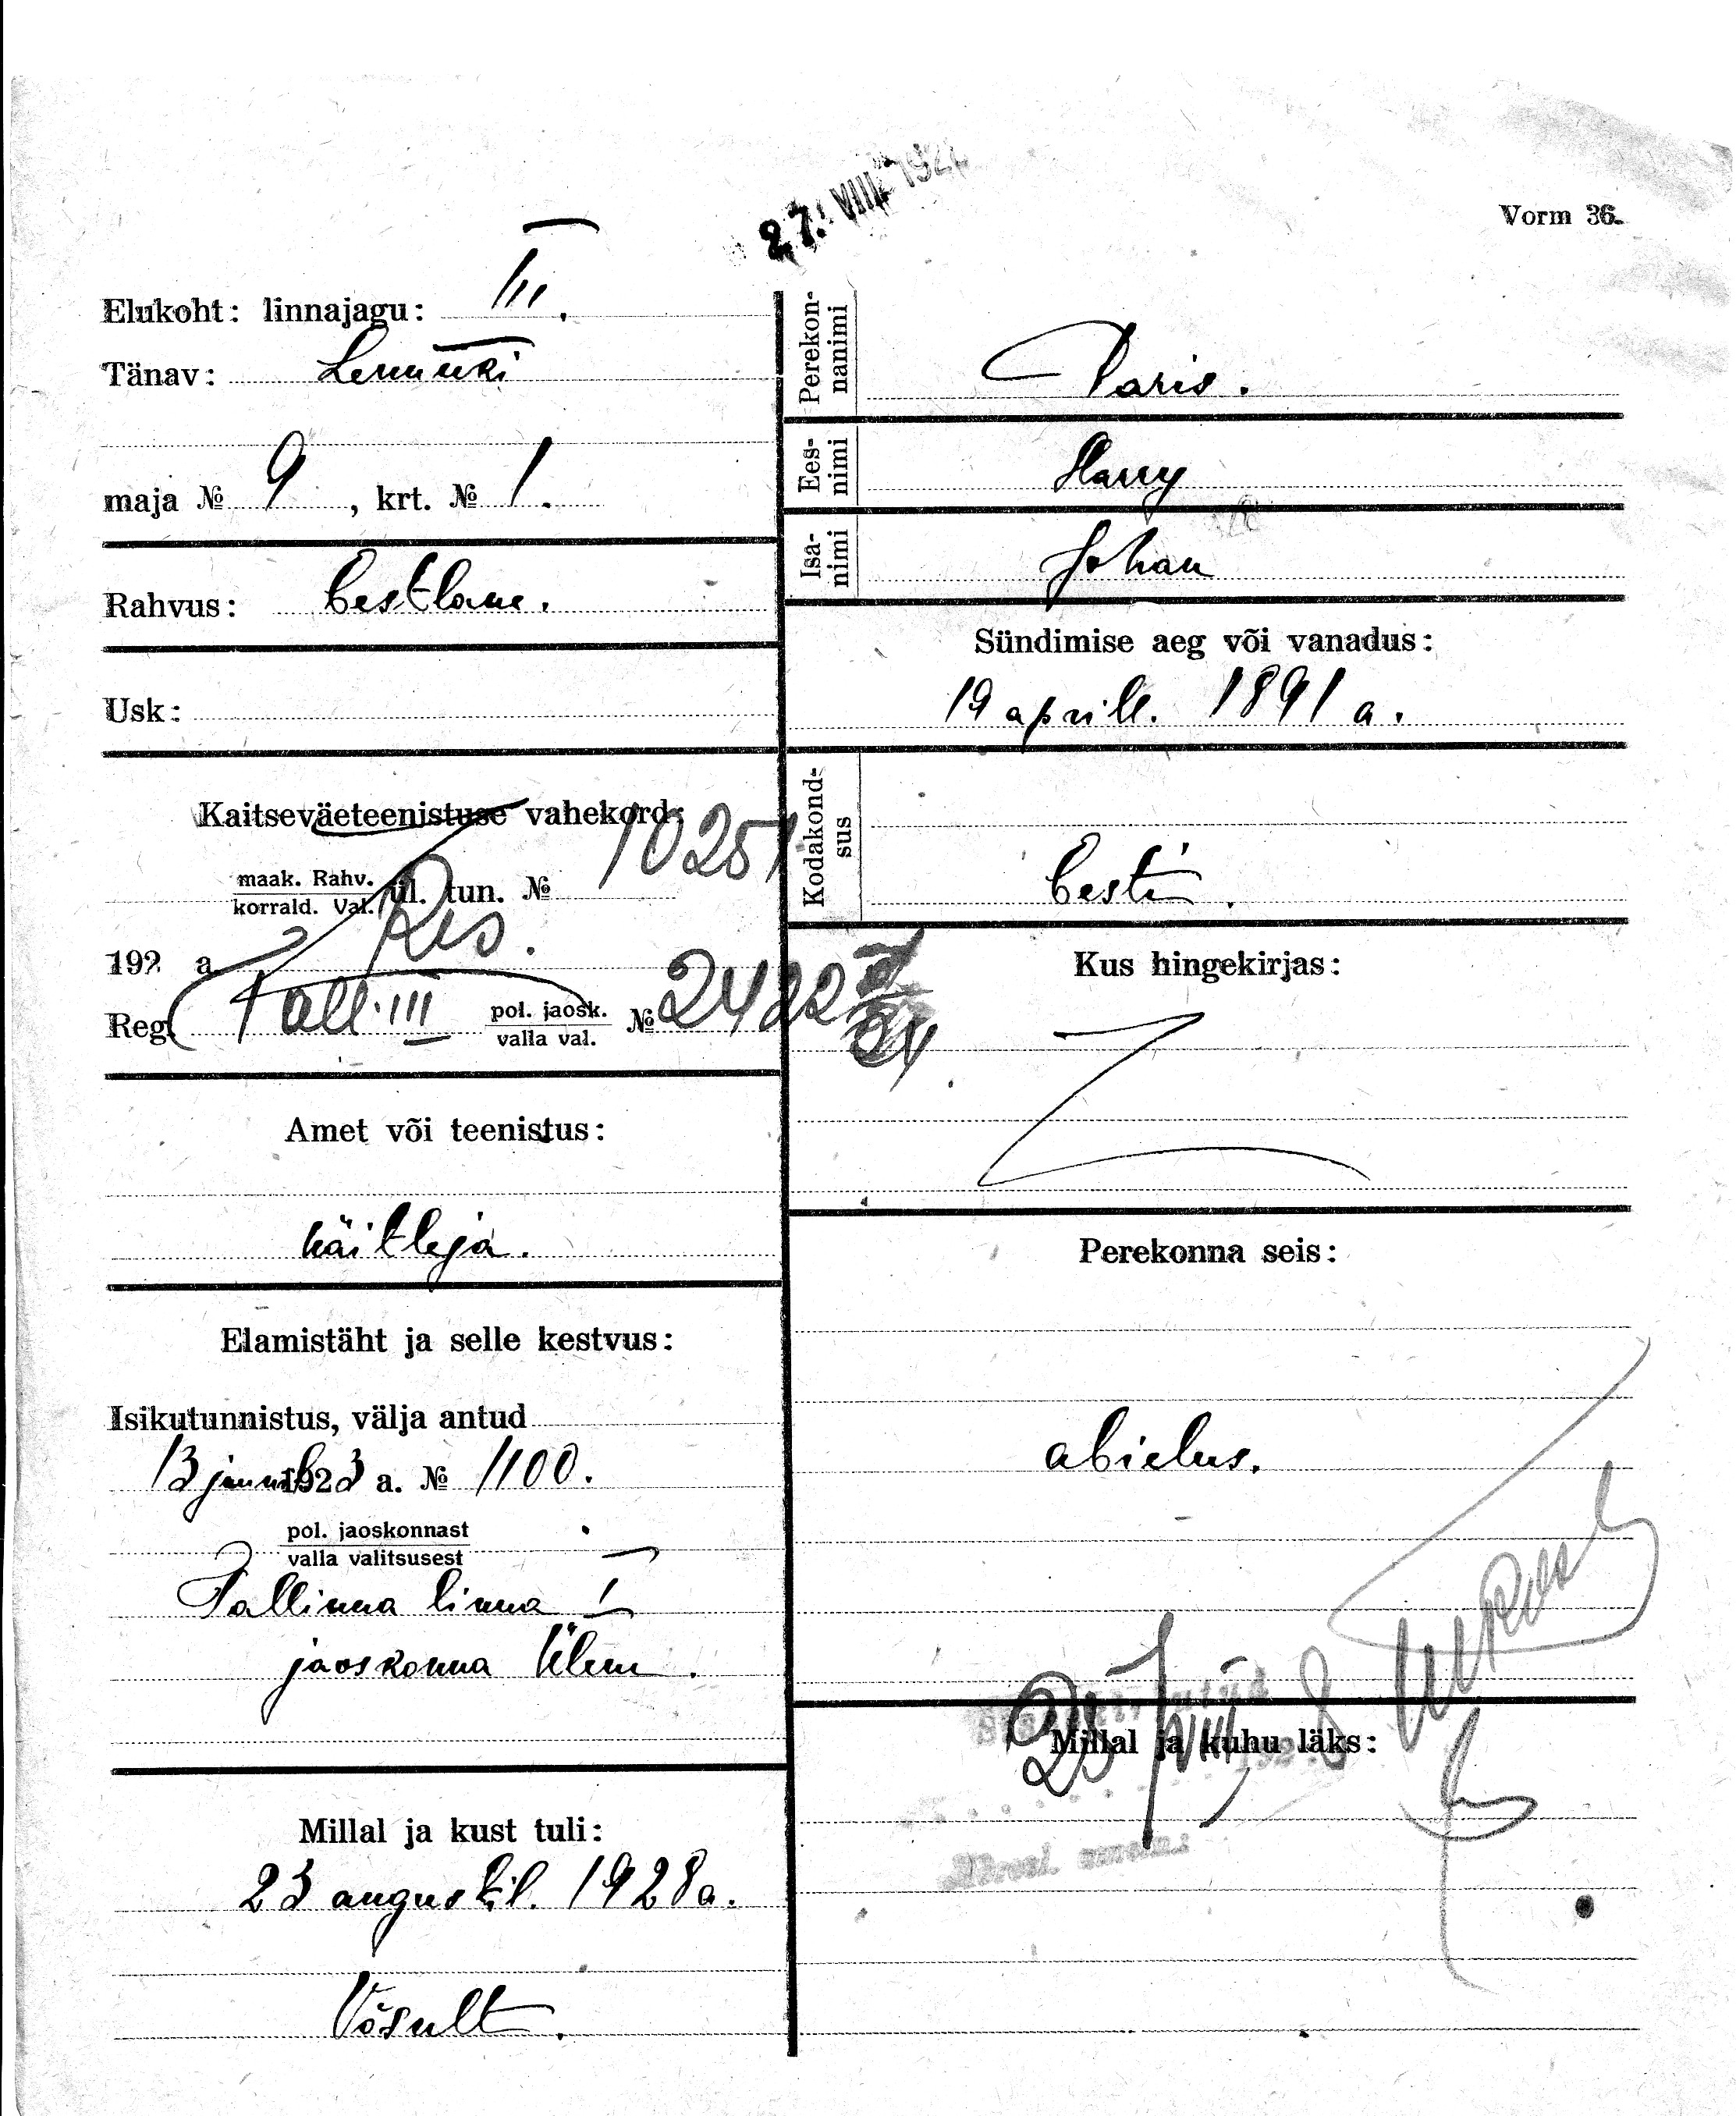 27. VIII 192
Vorm 36.
Elukoht: linnajagu: III.
Tänav: Lennuki
maja № 9, krt. № 1.
Rahvus: Eestlane.
Usk:
Kaitseväeteenistuse vahekord:
10251
maak. Rahv.
korrald. Val. ül. tun. №
Res.
192 a
Reg. Tall. III pol. jaosk. № 2422
valla val.
Amet või teenistus:
näitleja.
Elamistäht ja selle kestvus:
Isikutunnistus, välja antud
13 juunil 1923 a. № 1100.
pol. jaoskonnast
valla valitsusest
Tallinna linna I
jaoskonna Ülem.
Millal ja kust tuli:
23 augustil. 1928 a.
Võsult.
Perekon-
nanimi
Paris.
Ees-
nimi
Harry
Isa-
nimi
Johan
Sündimise aeg või vanadus:
19 aprill. 1891 a.
Kodakond-
sus
Eesti.
Kus hingekirjas:
Perekonna seis:
abielus.
Millal ja kuhu läks: